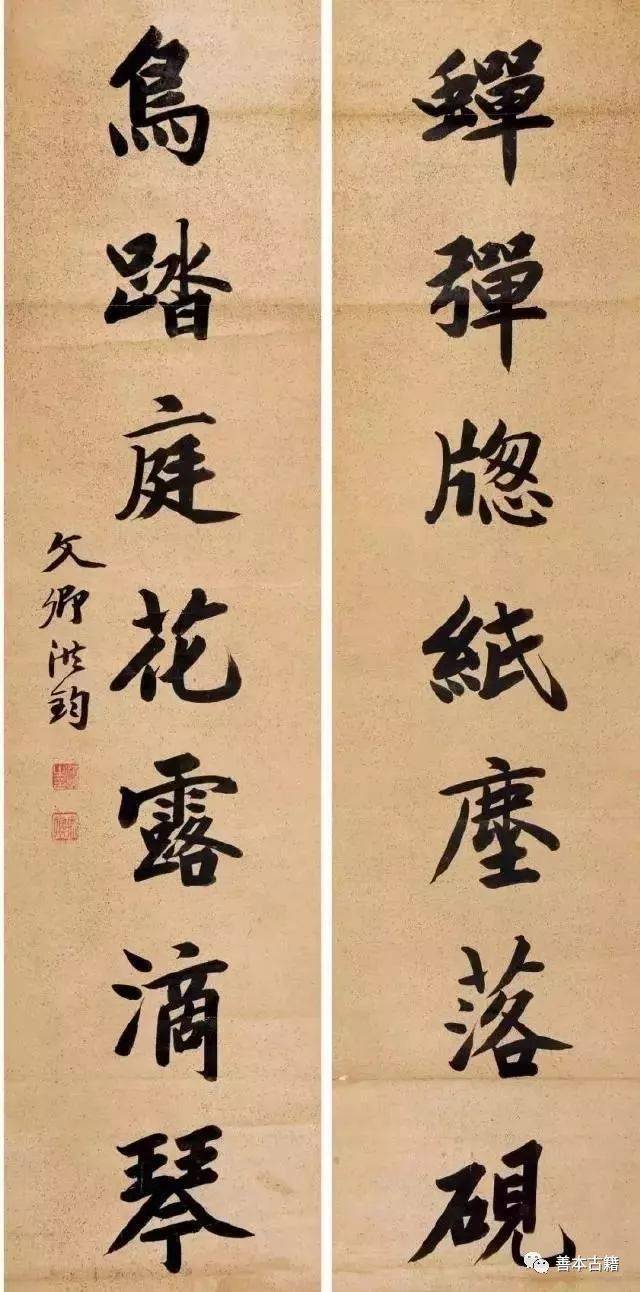 蟬彈牎紙塵落硯
鳥踏庭花露滴琴
文卿洪鈞
善本古籍